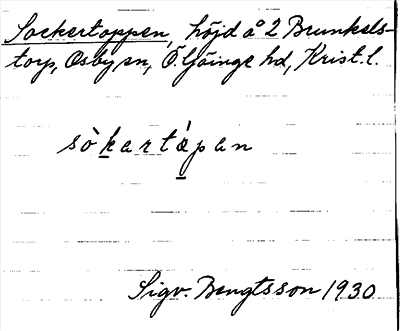 Sockertoppen, höjd å 2 Brunkels-
torp, Osby sn, Ö. Göinge hd, Krist. l.
sò̀kartápan
Sigv. Bengtsson 1930